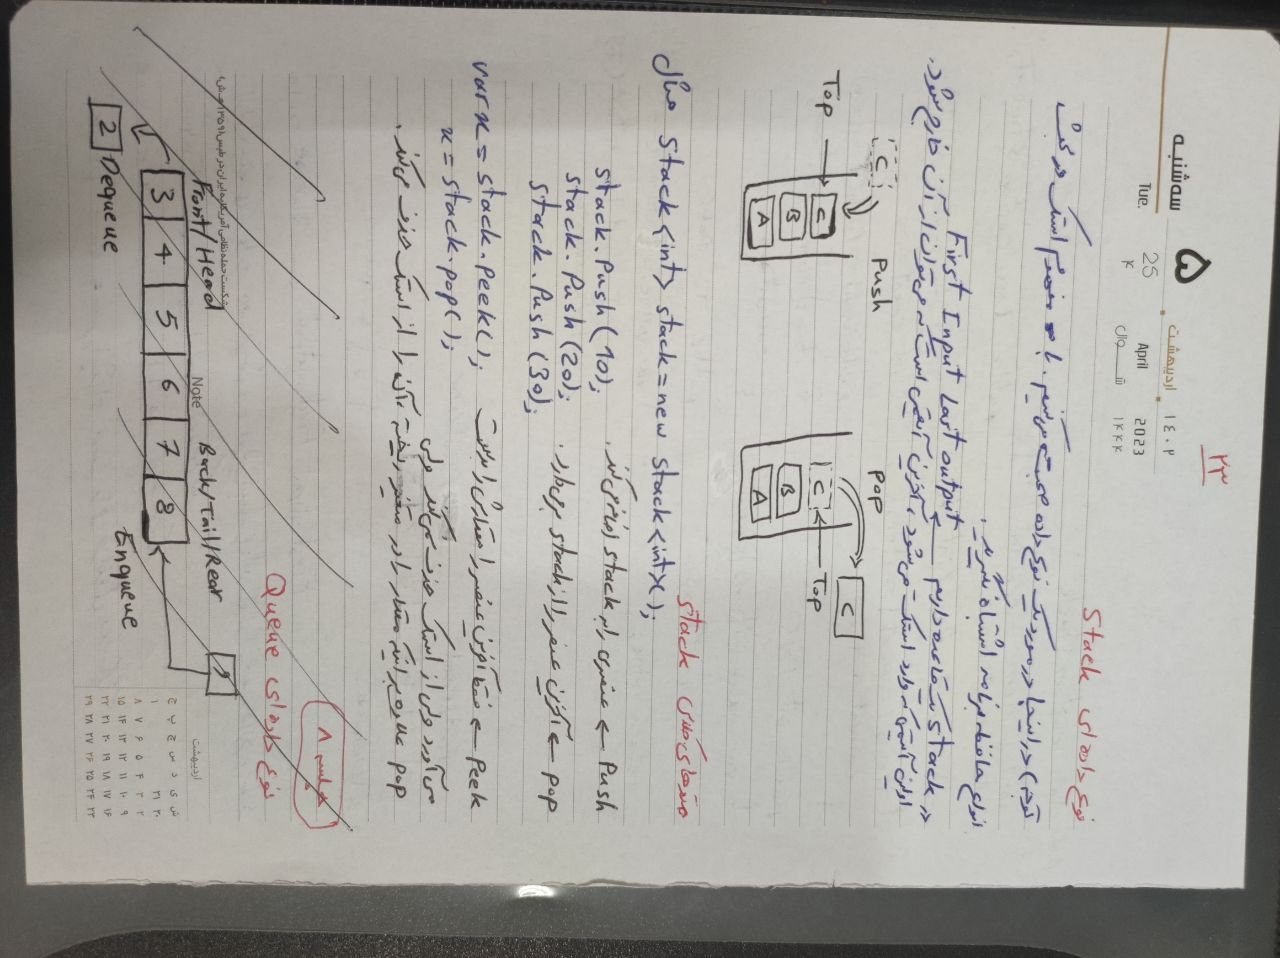 ۲۳
سه‌شنبه ۵ اردیبهشت ۱۴۰۲
Tue. 25 April 2023
۴ شوال ۱۴۴۴
نوع داده ای Stack
توجه) در اینجا در مورد یک نوع داده صحبت می‌کنیم. با مفهوم استک در بحث
انواع حافظه برنامه اشتباه نگیرید.
در stack یک قاعده داریم ← First Input Last output
اولین آیتمی که وارد استک می‌شود، آخرین آیتمی است که می‌توان از آن خارج شود.
C Push
Top → C
B
A
Pop C
C ← Top
B
A
متدهای کلاس stack
مثال Stack<int> stack = new stack<int>();
Push ← عنصری را به stack اضافه می‌کند.
stack.Push(10);
stack.Push(20);
stack.Push(30);
pop ← آخرین عنصر را از stack برمی‌دارد.
Peek ← فقط آخرین عنصر را مقدارش را بدست
می‌آورد ولی از استک حذف نمی‌کند ولی
pop علاوه بر اینکه مقدار را در متغیر ریخته، آن را از استک حذف می‌کند.
var x = stack.Peek();
x = stack.pop();
جلسه ۸
نوع داده ای Queue
شکست حمله نظامی آمریکا به ایران در طبس (۱۳۵۹ ه‍.ش)
Front/Head Note Back/Tail/Rear
3 4 5 6 7 8
9
2 Dequeue
Enqueue
اردیبهشت
ش ی د س چ پ ج
۳۰ ۳۱ ۱
۲ ۳ ۴ ۵ ۶ ۷ ۸
۹ ۱۰ ۱۱ ۱۲ ۱۳ ۱۴ ۱۵
۱۶ ۱۷ ۱۸ ۱۹ ۲۰ ۲۱ ۲۲
۲۳ ۲۴ ۲۵ ۲۶ ۲۷ ۲۸ ۲۹